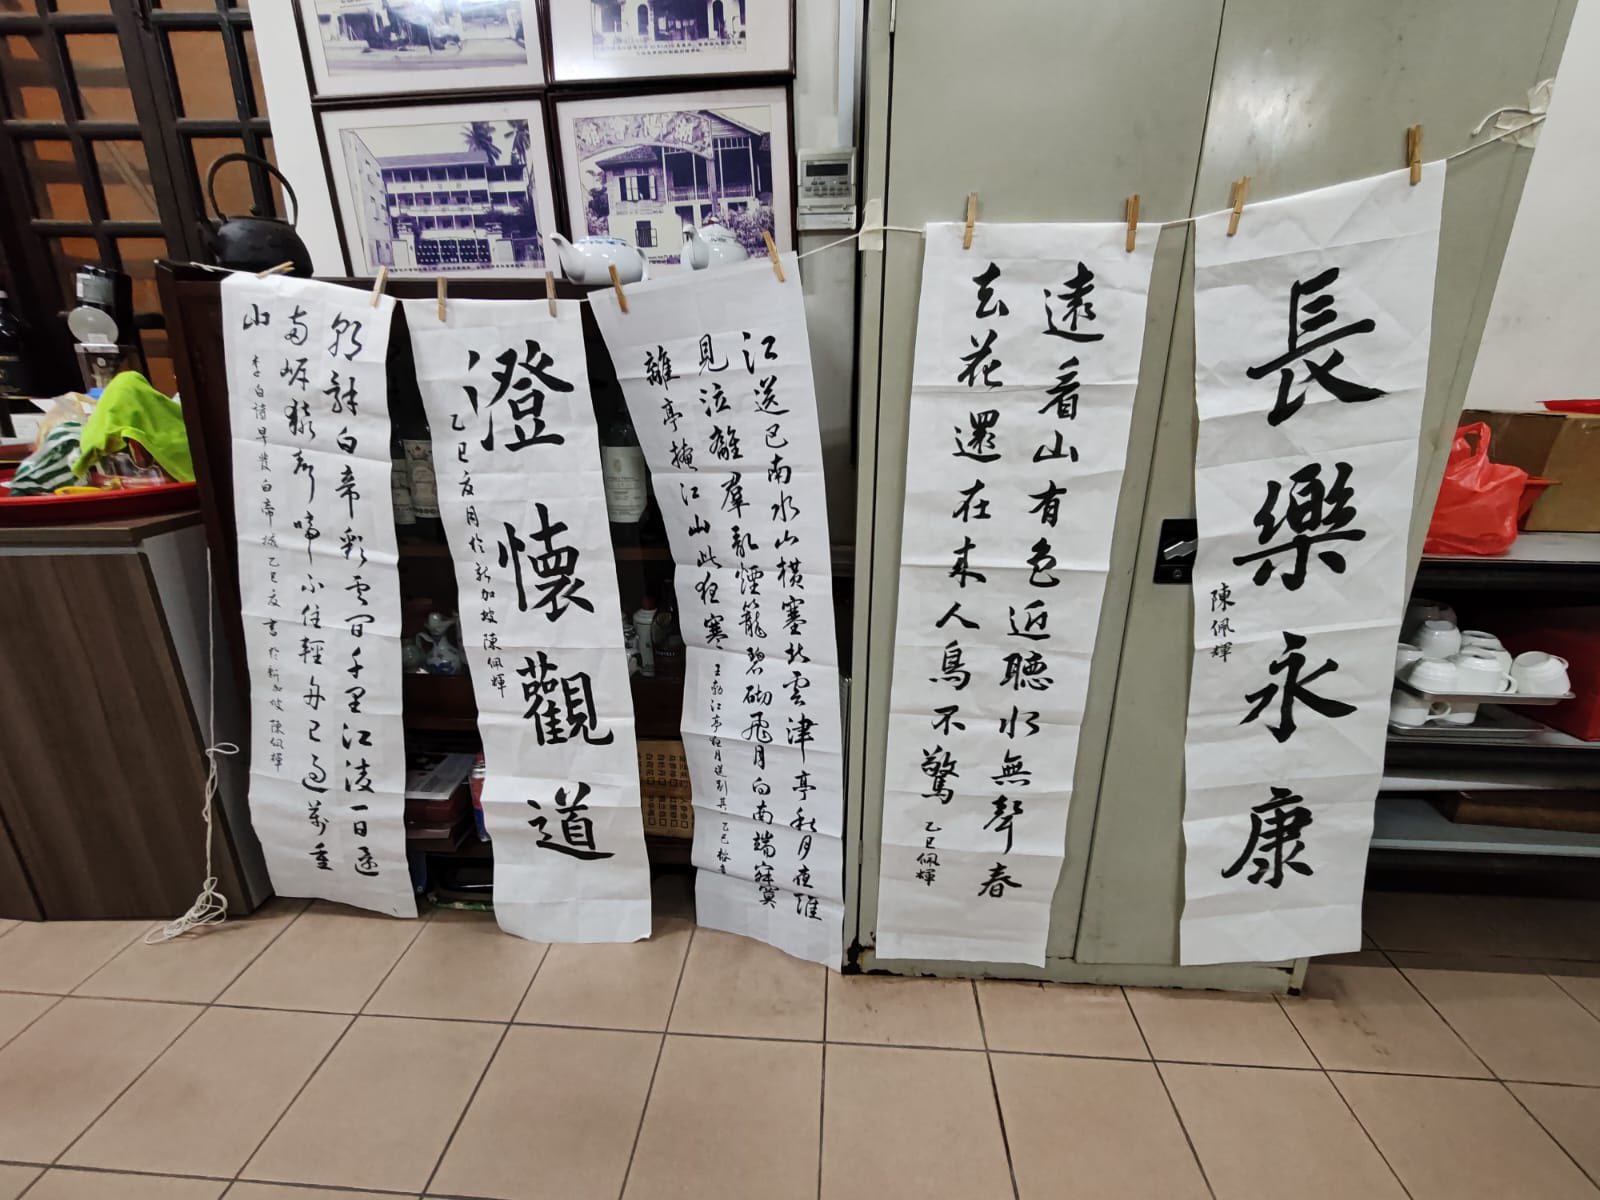 長樂永康
陳佩輝
遠看山有色近聽水無聲春
去花還在来人鳥不驚
乙巳佩輝
江送巴南水山橫塞北雲津亭秋月夜誰
見泣離羣亂煙籠碧砌飛月向南端寂寞
離亭掩江山此夜寒
王勃江亭夜月送別其 乙巳
澄懷觀道
乙巳夏月於新加坡陳佩輝
朝辞白帝彩雲間千里江陵一日還
两岸猿聲啼不住輕舟已過萬重
山
李白詩早發白帝城乙巳夏書於新加坡陳佩輝